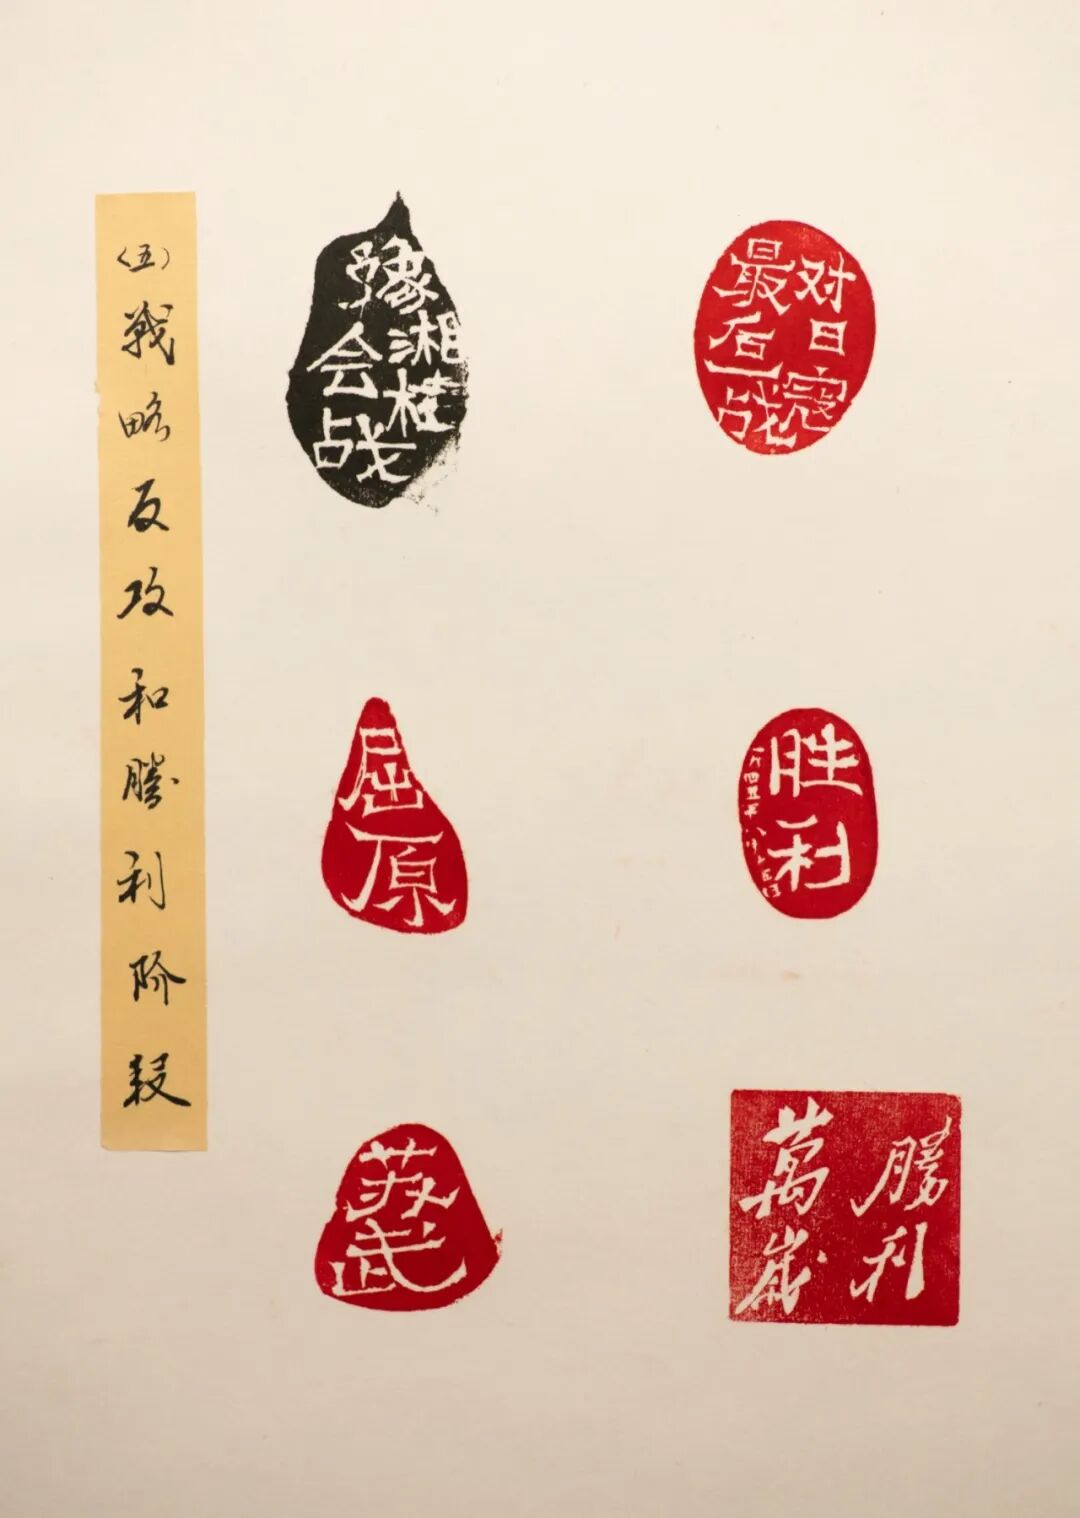 （五）戰略反攻和勝利阶段
豫湘桂
会战
对日寇
最后一战
屈原
胜利
一九四五年八月十五日
苏武
勝利
萬歲